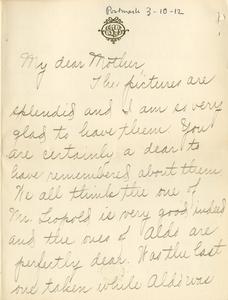 Postmark 3-10-12
My dear Mother,
The pictures are
splendid and I am so very
glad to have them. You
are certainly a dear to
have remembered about them.
We all think the one of
Mr. Leopold is very good indeed
and the ones of "Aldo" are
perfectly dear. Was the last
one taken while Aldo was